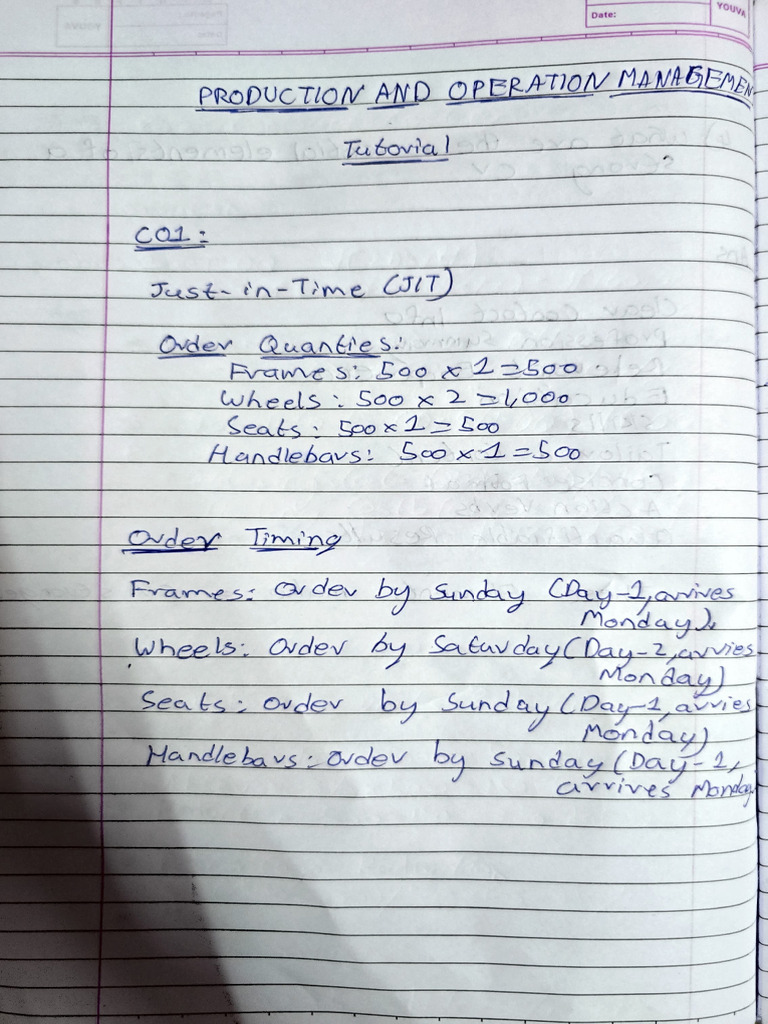 Date:
YOUVA
PRODUCTION AND OPERATION MANAGEMEN
Tutorial
CO1:
Just-in-Time (JIT)
Order Quanties:
Frames: 500 x 1 = 500
Wheels: 500 x 2 = 1,000
Seats: 500 x 1 = 500
Handlebars: 500 x 1 = 500
Order Timing
Frames: Order by Sunday (Day-1, arrives
Monday).
Wheels: Order by Saturday (Day-2, arvies
Monday)
Seats: Order by Sunday (Day-1, arvies
Monday)
Handlebars: Order by Sunday (Day-1,
arrives Monday